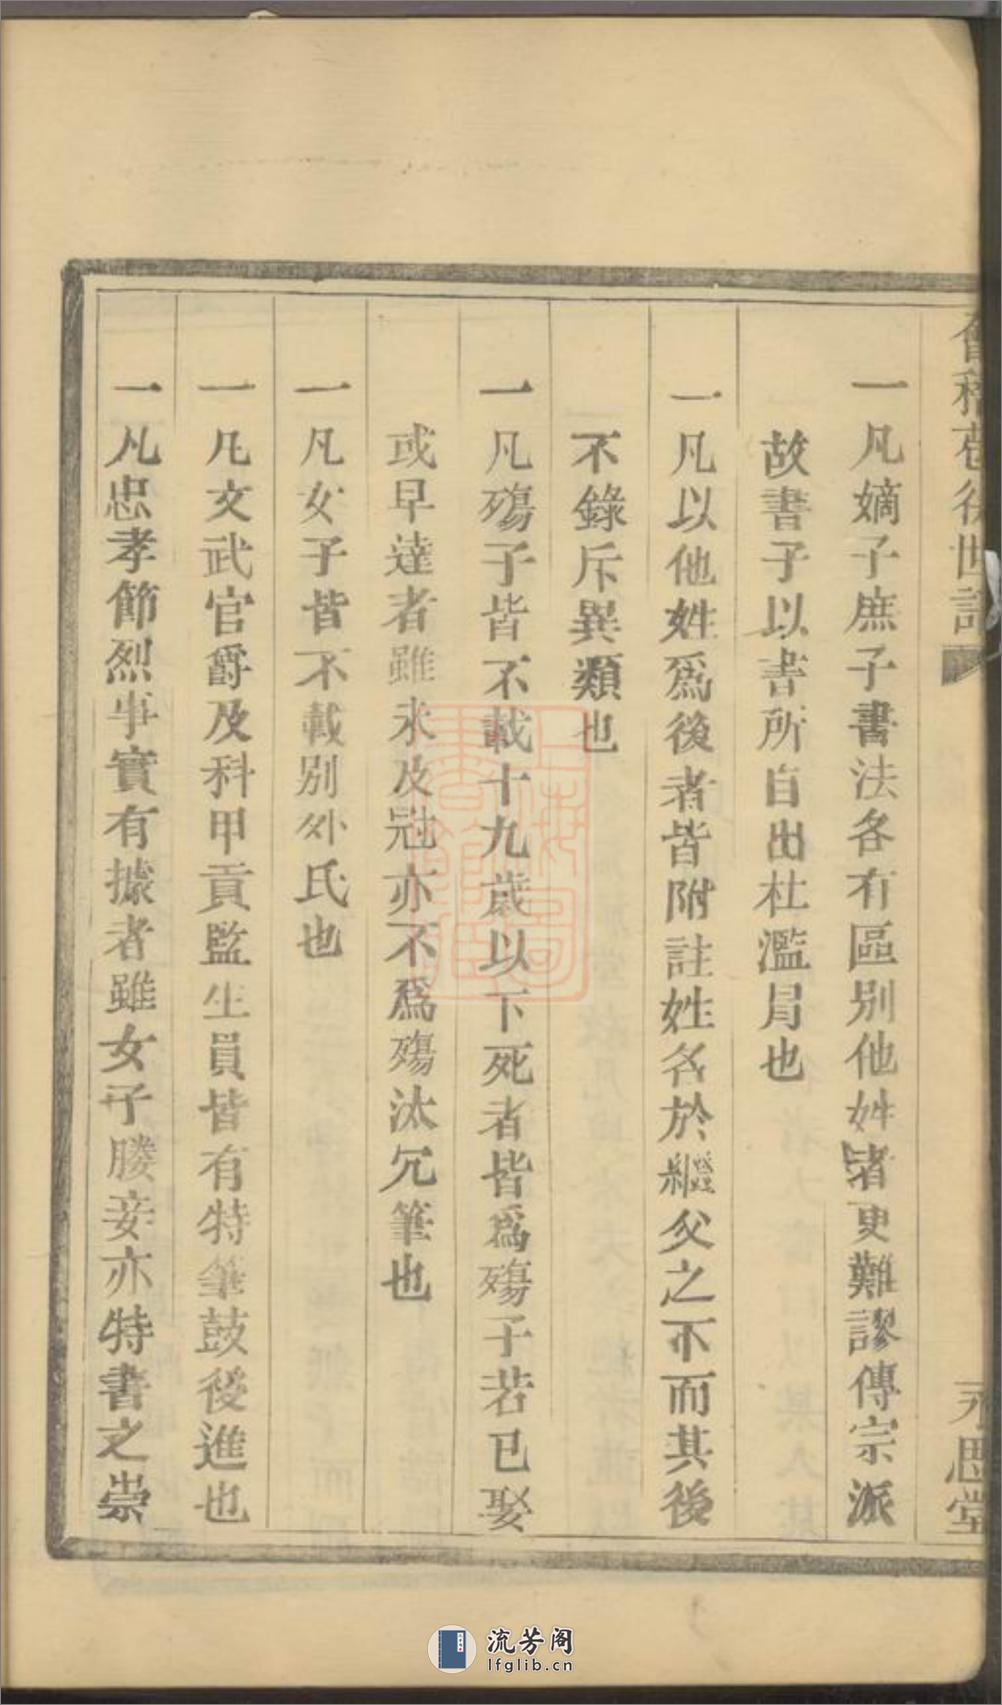 會稽苞徐世譜
永思堂
一凡嫡子庶子書法各有區別他姓諸更難謬傳宗派
故書子以書所自出杜濫局也
一凡以他姓爲後者皆附註姓名於繼父之下而其後
不錄斥異類也
一凡殤子皆不載十九歲以下死者皆爲殤子若已娶
或早達者雖未及冠亦不爲殤汰冗筆也
一凡女子皆不載別外氏也
一凡文武官爵及科甲貢監生員皆有特筆鼓後進也
一凡忠孝節烈事實有據者雖女子媵妾亦特書之崇
流芳阁
lfglib.cn